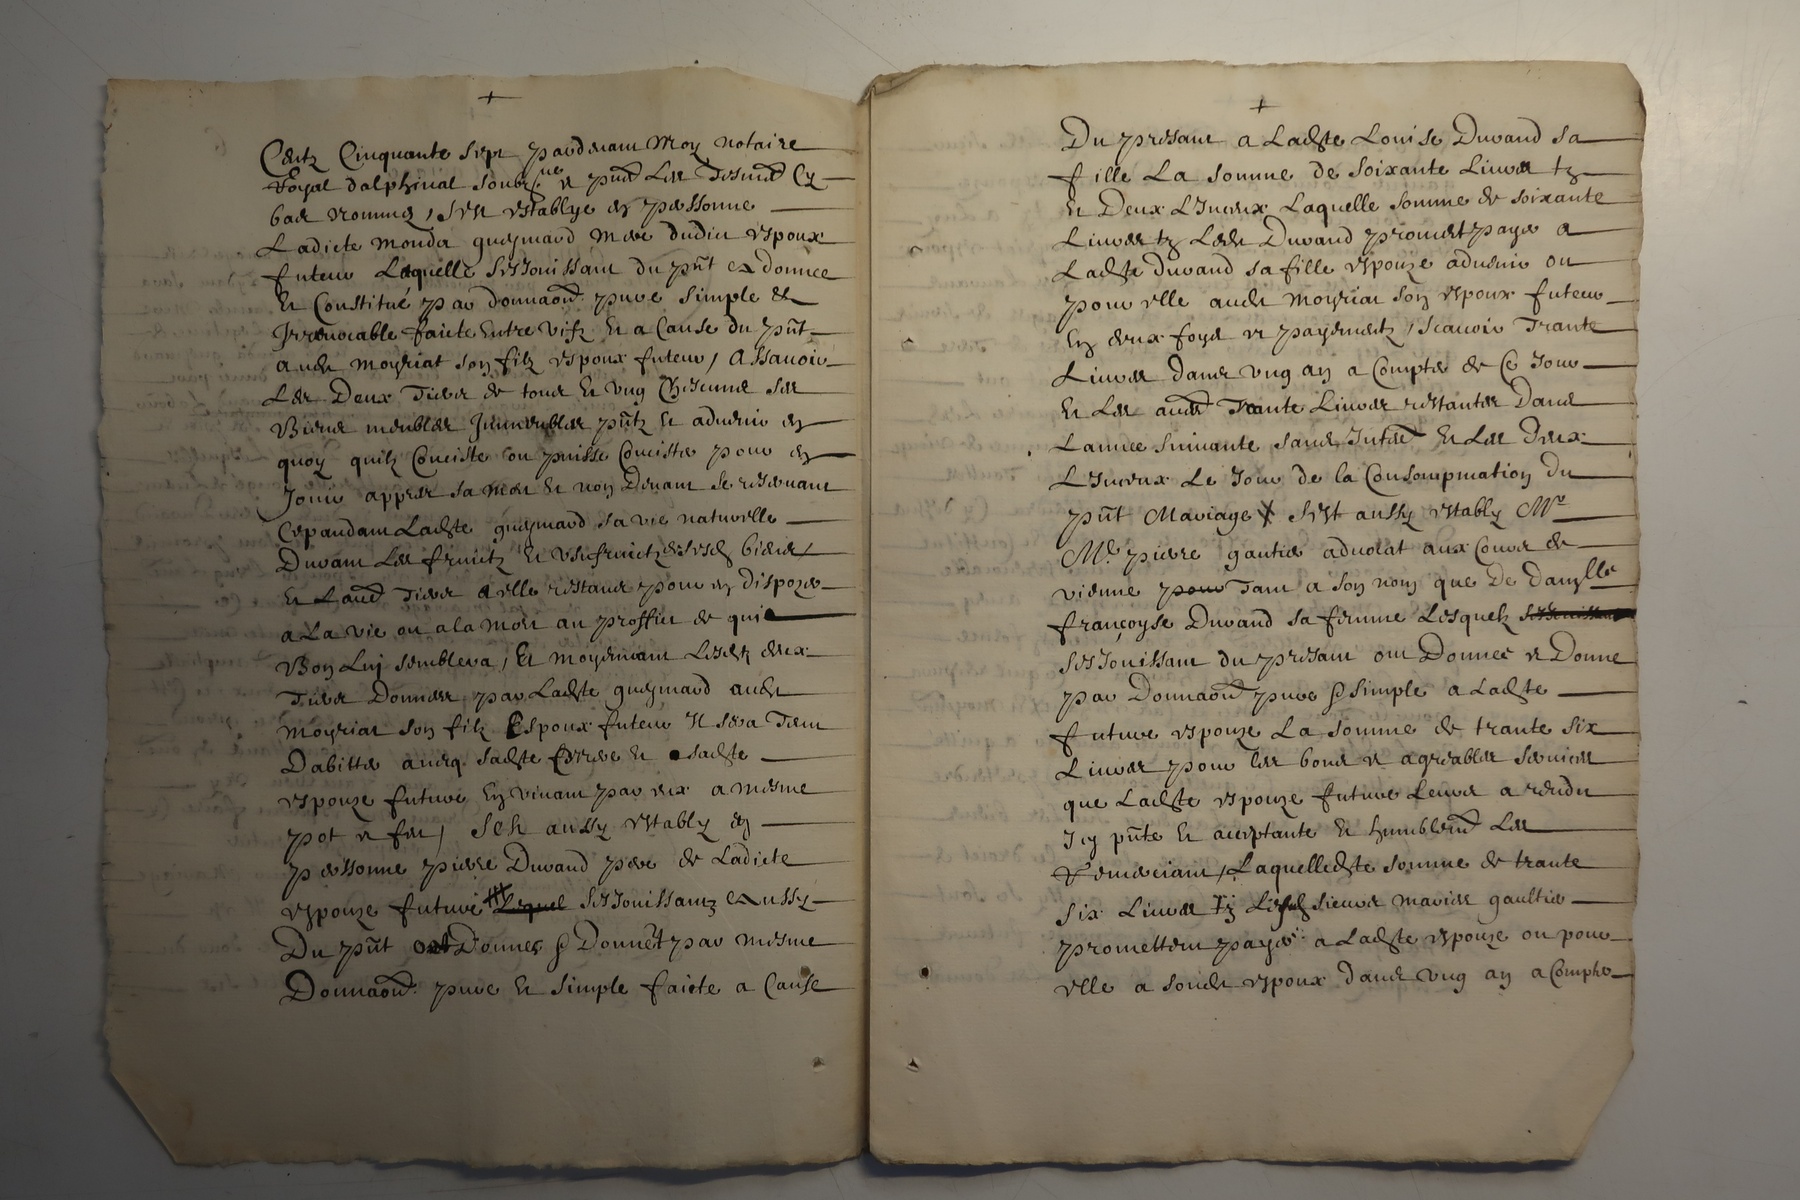 +
Centz Cinquante sept pardevant Moy notaire
Royal dalphinal soubz.ne et pñtz Les Tesmd Cy
bas nommez, s'est establye en personne
Ladicte Monda gueymard Mere dudict espoux
futeur Laquelle s'esjouissant du pñt a donnee
Et Constitué par donnaon pure simple et
Irrevocable faicte Entre vifz Et a Cause du pñt
audt moyriat son filz espoux futeur, Assavoir
Les Deux Tiers de tous Et Vng Chescung ses
Biens meubles Immeubles pñtz Et advenir en
quoy quilz Conciste ou puisse Concister pour en
Jouir appres sa mort Et non Devant se reservant
Cepandant Ladte gueymard sa vie naturelle
Durant Les fruictz Et Vsufruictz desesd biens
Et Laud Tiers a elle restant pour en dispozer
a La vie ou a la Mort au proffict de qui
Bon Luy semblera, Et moyenant Lesdtz deux
Tiers Donnes par Ladte gueymard audt
Moyriat son filz Espoux futeur Il sera Tenu
Dabitter avecq sadte Merre et sadte
espouze future En vivant par eux a mesme
pot et feu, Sest aussy estably en
personne pierre Durand pere de Ladicte
espouze future Lequel s'esjouissantz aussy
Du pñt ont Donnes & Donnêt par mesme
Donnaon pure Et simple faicte a Cause
+
Du presant a Ladte Louise Durand sa
fille La somme de soixante Livres tz
Et Deux Linceux Laquelle somme de soixante
Livres tz Ledt Durand promet payer a
Ladte Durand sa fille espouze advenir ou
pour elle audt Moyriat son espoux futeur
En deux foys et payementz, scavoir Trante
Livres dans vng an a Compter de Ce Jour
Et Les aud Trante Livres restantes Dans
Lannee suivante sans Interd Et Les Deux
Linceux Le Jour de la Consompmation Du
pñt Mariage s'est aussy estably Mr
Me pierre gautier advocat aux Cours de
vienne pour Tant a son nom que De damlle
françoyse Durand sa femme Lesquelz s'esjouissant
s'esjouissant du presant ont Donnee et Donne
par Donnaon pure & simple a Ladte
future espouze La somme de trante six
Livres pour les bons et agreables services
que Ladte espouze future Leurs a rendu
Icy pñte Et acceptante Et humblemt Les
Remerciant, Laquelledte somme de trante
six Livres Tz Lesd sieurs maries gaultier
promettent payer a Ladte espouze ou pour
elle a sondt espoux dans vng an a Compter